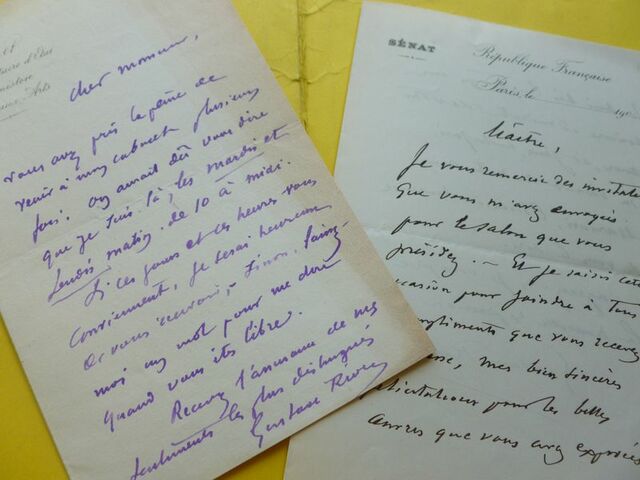 et
taire d'Etat
Beaux-Arts
Cher monsieur,
vous avez pris la peine de
venir à mon cabinet plusieurs
fois. On aurait dû vous dire
que je suis là, les mardis et
lundis matin de 10 à midi.
Si ces jours et ces heures vous
conviennent, je serai heureux
de vous recevoir, - sinon,
moi un mot pour me dire
quand vous êtes libre.
Recevez l'assurance de mes
sentiments les plus distingués
Gustave Rivet
SÉNAT
République Française
Paris, le 190
Maître,
Je vous remercie des invitations
que vous m'avez envoyées
pour le salon que vous
présidez. - Et je saisis cette
occasion pour joindre à tous
compliments que vous recevez
mes bien sincères
félicitations pour les belles
œuvres que vous avez exposées